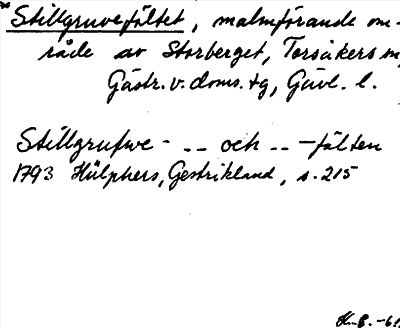 Stillgruvefältet, malmförande om-
råde av Storberget, Torsåkers
Gästr. v. doms. tg, Gävl. l.
Stillgrufwe- -- och -- -fälten
1793 Hülphers, Gestrikland, s. 215